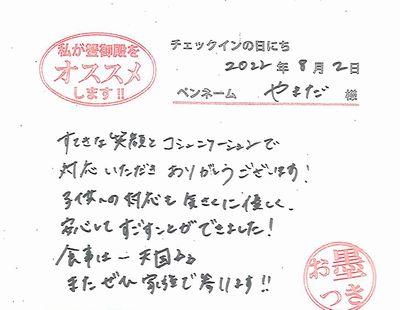 私が蟹御殿を
オススメ
します!!
チェックインの日にち
2022年 8月 2日
ペンネーム やまだ 様
すてきな笑顔とコミュニケーションで
対応いただきありがとうございます!
子供への対応も気さくに優しく、
安心してすごすことができました!
食事は一天国
またぜひ家族で着ります!!
お墨
つき